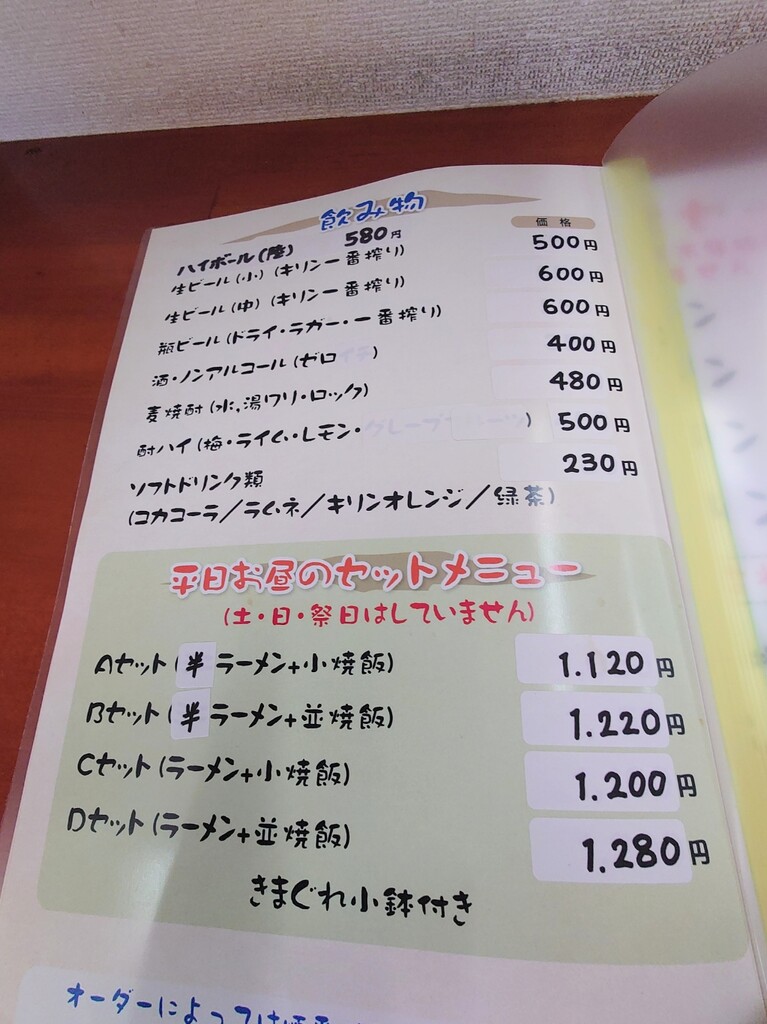 飲み物
価格
ハイボール(陸) 580円
生ビール(小)(キリン一番搾り) 500円
生ビール(中)(キリン一番搾り) 600円
瓶ビール(ドライ・ラガー・一番搾り) 600円
酒・ノンアルコール(ゼロイチ) 400円
麦焼酎(水,湯ワリ・ロック) 480円
酎ハイ(梅・ライム・レモン・グレープフルーツ) 500円
ソフトドリンク類 230円
(コカコーラ/ラムネ/キリンオレンジ/緑茶)
平日お昼のセットメニュー
(土・日・祭日はしていません)
Aセット(半ラーメン+小焼飯) 1.120円
Bセット(半ラーメン+並焼飯) 1.220円
Cセット(ラーメン+小焼飯) 1.200円
Dセット(ラーメン+並焼飯) 1.280円
きまぐれ小鉢付き
オーダーによっては